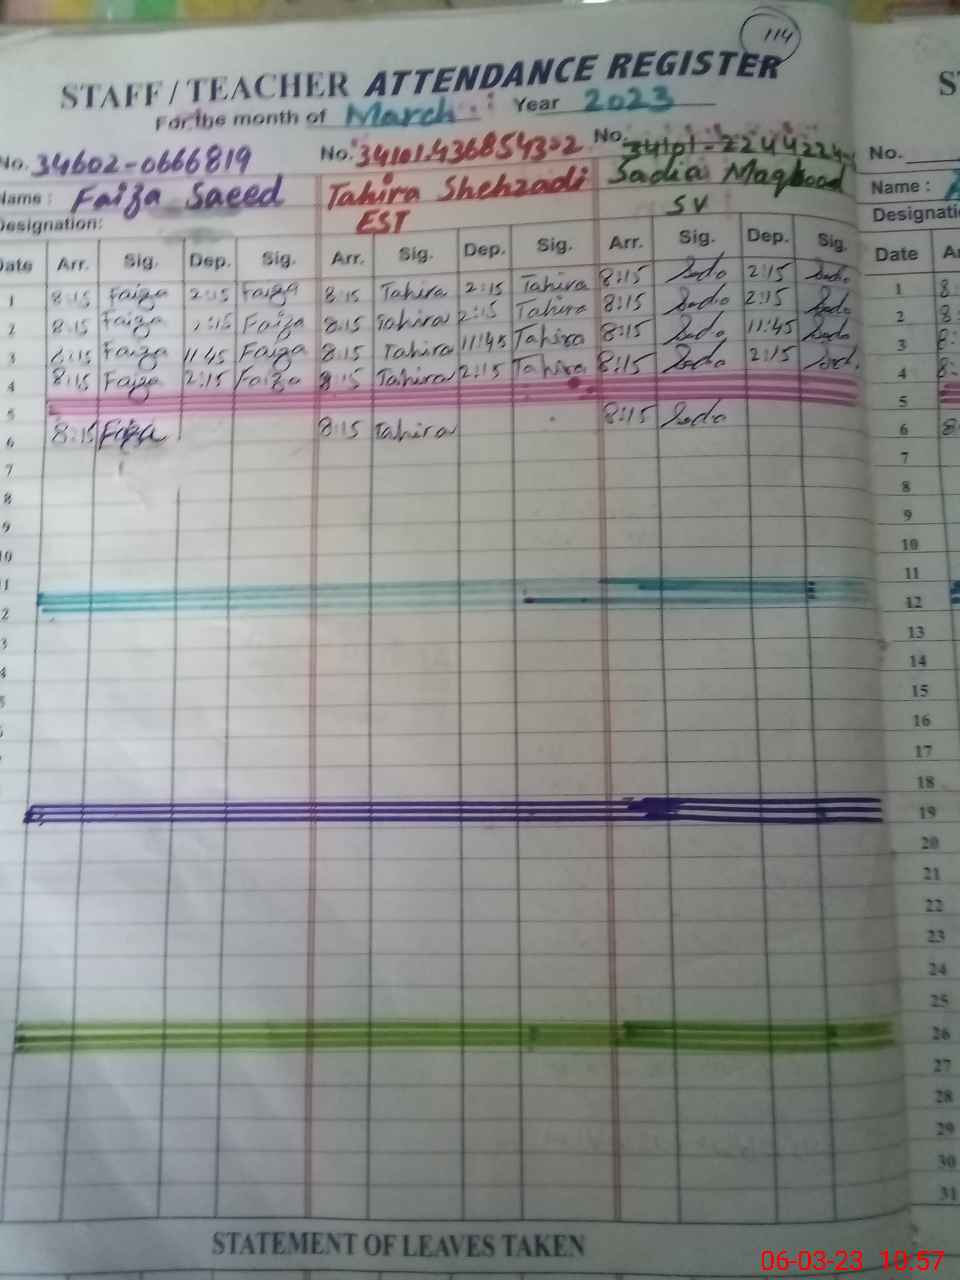 114
STAFF / TEACHER ATTENDANCE REGISTER
For the month of March Year 2023
No. 34602-0666819 No. 34101-436854302 No.
No.
Name : Faiza Saeed Tahira Shehzadi Sadia Maqsood
Name :
Designation: EST SV
Designati
Date Arr. Sig. Dep. Sig. Arr. Sig. Dep. Sig. Arr. Sig. Dep. Sig. Date
1 8:15 Faiza 2:15 Faiza 8:15 Tahira 2:15 Tahira 8:15 Sadia 2:15 Sadia 1
2 8:15 Faiza 2:15 Faiza 8:15 Tahira 2:15 Tahira 8:15 Sadia 2:15 Sadia 2
3 8:15 Faiza 11:45 Faiza 8:15 Tahira 11:45 Tahira 8:15 Sadia 11:45 Sadia 3
4 8:15 Faiza 2:15 Faiza 8:15 Tahira 2:15 Tahira 8:15 Sadia 2:15 Sadia 4
5 5
6 8:15 Faiza 8:15 Tahira 8:15 Sadia 6
7 7
8 8
9 9
10 10
11 11
12 12
13 13
14 14
15 15
16
17
18
19
20
21
22
23
24
25
26
27
28
29
30
31
STATEMENT OF LEAVES TAKEN
06-03-23 10:57